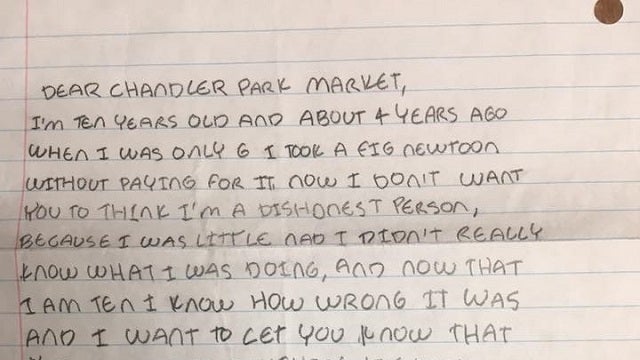 DEAR CHANDLER PARK MARKET,
I'M TEN YEARS OLD AND ABOUT 4 YEARS AGO
WHEN I WAS ONLY 6 I TOOK A FIG NEWTOON
WITHOUT PAYING FOR IT NOW I DON'T WANT
YOU TO THINK I'M A DISHONEST PERSON,
BECAUSE I WAS LITTLE NAD I DIDN'T REALLY
KNOW WHAT I WAS DOING, AND NOW THAT
I AM TEN I KNOW HOW WRONG IT WAS
AND I WANT TO LET YOU KNOW THAT